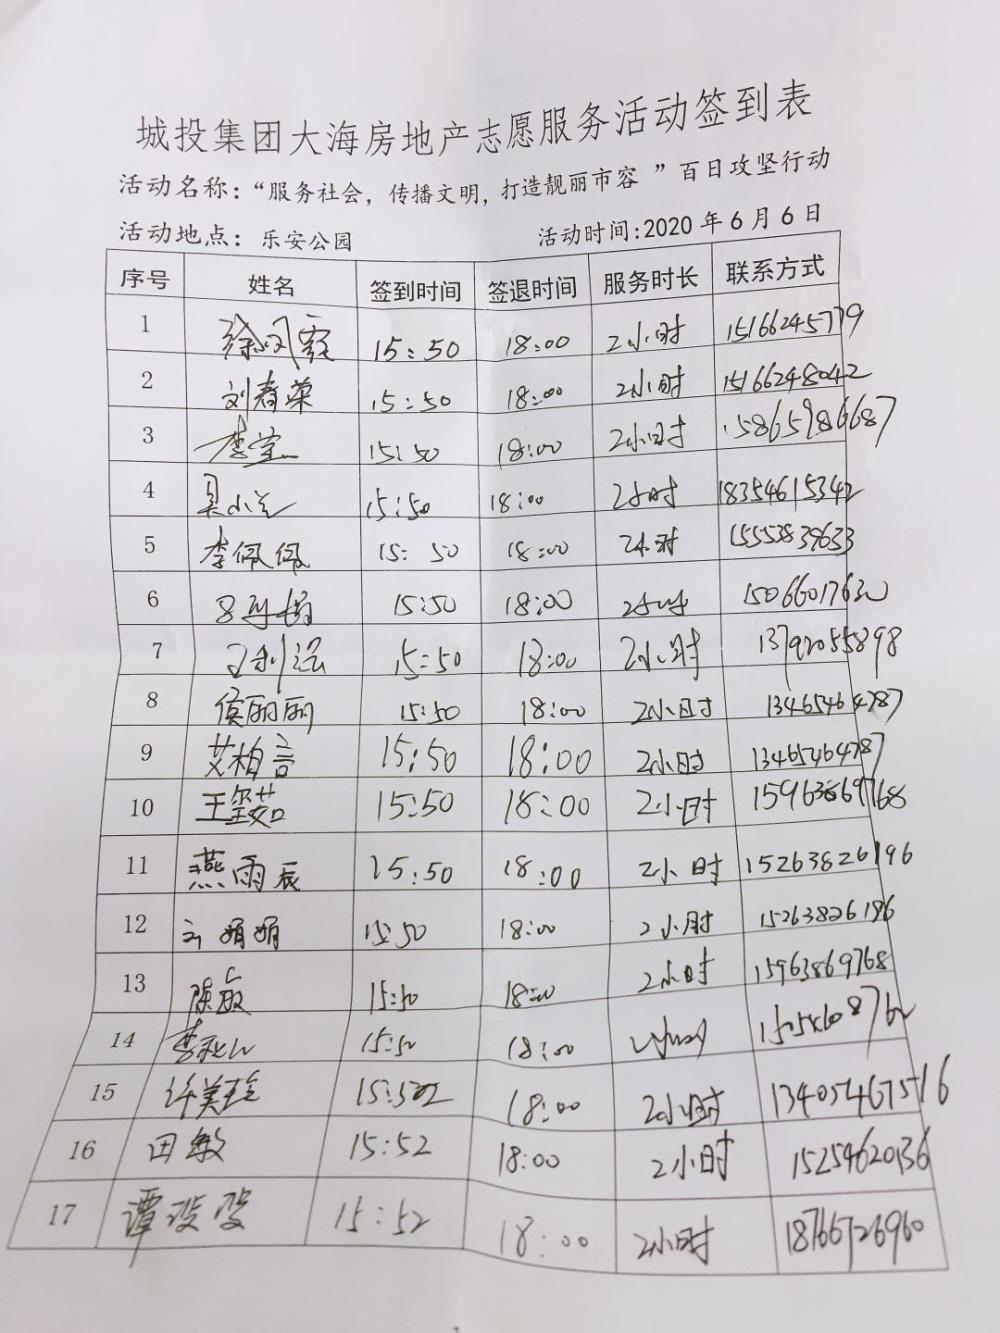 城投集团大海房地产志愿服务活动签到表
活动名称：“服务社会，传播文明，打造靓丽市容 ”百日攻坚行动
活动地点：乐安公园 活动时间:2020 年 6 月 6 日
序号 姓名 签到时间 签退时间 服务时长 联系方式
1 徐凤霞 15:50 18:00 2小时 15166245779
2 刘春荣 15:50 18:00 2小时 15166248042
3 李宝 15:50 18:00 2小时 15865986687
4 吴小兰 15:50 18:00 2小时 18354615342
5 李佩佩 15:50 18:00 2小时 15553839633
6 15:50 18:00 2小时 15066017630
7 王利 15:50 18:00 2小时 13792055898
8 侯丽丽 15:50 18:00 2小时 13465464787
9 艾柏言 15:50 18:00 2小时 13465464787
10 王玺茹 15:50 18:00 2小时 15963869768
11 燕雨辰 15:50 18:00 2小时 15263826196
12 娟娟 15:50 18:00 2小时 15263826196
13 陈敏 15:50 18:00 2小时 15963869768
14 李 15:50 18:00 2小时
15 许美玲 18:00 2小时 13405467516
16 田敏 15:52 18:00 2小时 15254620136
17 谭 15:52 18:00 2小时 18766726960